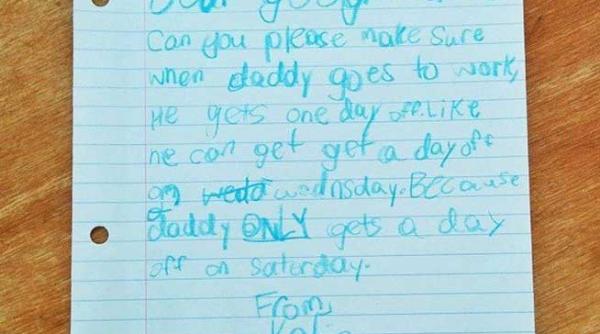 Dear goog
Can you please make sure
when daddy goes to work,
He gets one day off. Like
he can get get a day off
on wednsday. Because
daddy ONLY gets a day
off on Saturday.
From,